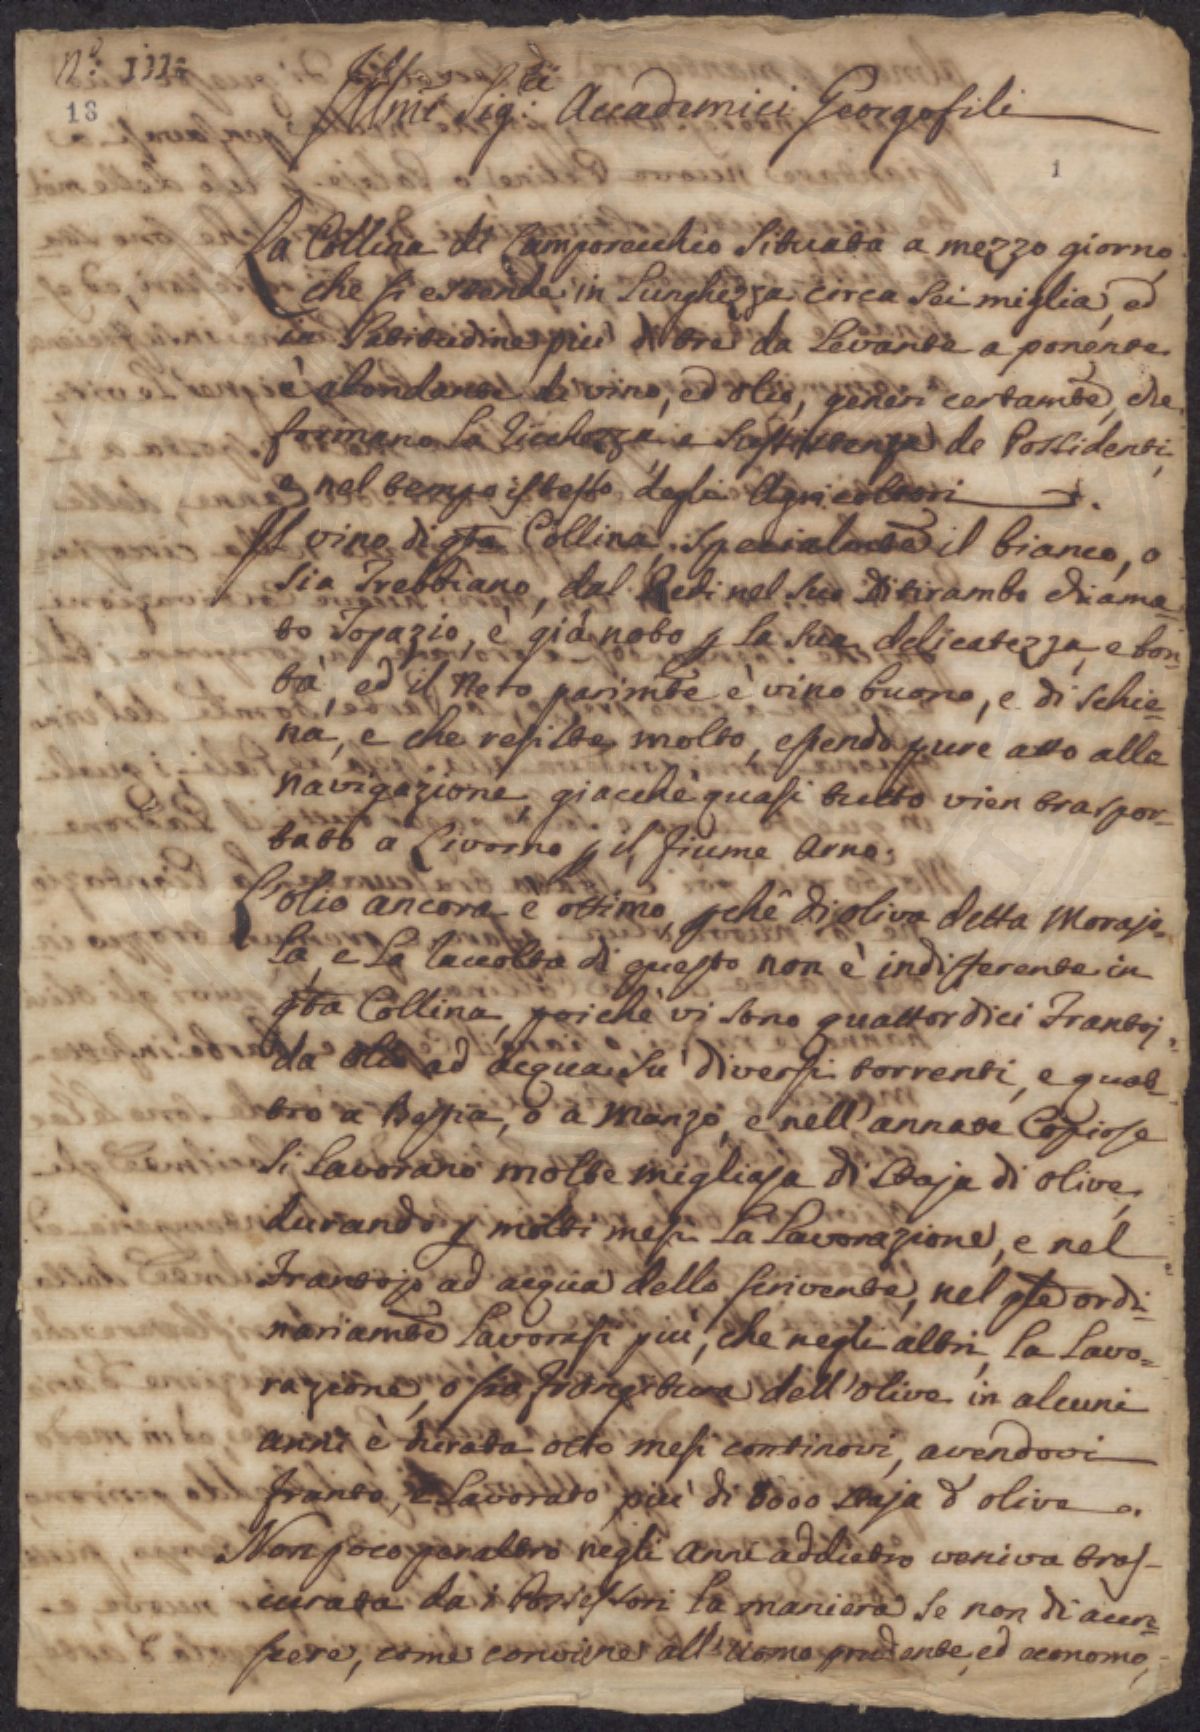 N.° III:
13
Illmi Sig:ri Accademici Georgofili
1
La Collina di Camporecchio Situata a mezzo giorno
che si estende in Lunghezza circa Sei miglia, ed
in Latitudine più di tre da Levante a ponente
è abondante di vino, ed olio, generi certamte, che
formano La Ricchezza, e Sussistenza de Possidenti,
e nel tempo istesso degli Agricoltori.
Il vino di qta Collina, Specialmte il bianco, o
sia Trebbiano, dal Redi nel Suo Ditirambo chiama=
to Topazio, è già noto p La Sua delicatezza, e bon=
tà, ed il Nero parimte è vino buono, e di Schie=
na, e che resiste molto, essendo pure atto alla
navigazione, giacche quasi tutto vien traspor=
tato a Livorno p il fiume Arno.
L'olio ancora è ottimo, pchè di oliva detta Morajo=
la, e La raccolta di questo non è indifferente in
qta Collina, poichè vi sono quattordici Frantoj
da olio ad acqua Su diversi torrenti, e quat=
tro a Bestia, o a Manzo, e nell'annate Copiose
Si Lavorano molte migliaja di Staja di olive,
durando p molti mesi La Lavorazione, e nel
Frantojo ad acqua dello scrivente, nel qle ordi=
nariamte Lavorasi più, che negli altri, La Lavo=
razione, o sia frangitura dell'olive in alcuni
anni è durata otto mesi continovi, avendovi
franto, e Lavorato più di 8000 Staja d'olive.
Non poco peraltro negli Anni addietro veniva tras=
curata da i Possessori La maniera Se non di accre=
scere, come conviene all'Uomo prudente, ed economo,